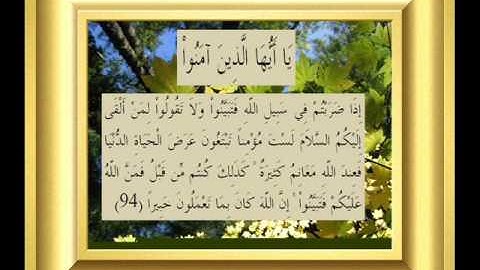 يَا أَيُّهَا الَّذِينَ آمَنُواْ
إِذَا ضَرَبْتُمْ فِي سَبِيلِ اللّهِ فَتَبَيَّنُواْ وَلاَ تَقُولُواْ لِمَنْ أَلْقَى
إِلَيْكُمُ السَّلاَمَ لَسْتَ مُؤْمِناً تَبْتَغُونَ عَرَضَ الْحَيَاةِ الدُّنْيَا
فَعِندَ اللّهِ مَغَانِمُ كَثِيرَةٌ كَذَلِكَ كُنتُم مِّن قَبْلُ فَمَنَّ اللّهُ
عَلَيْكُمْ فَتَبَيَّنُواْ إِنَّ اللّهَ كَانَ بِمَا تَعْمَلُونَ خَبِيراً (94)